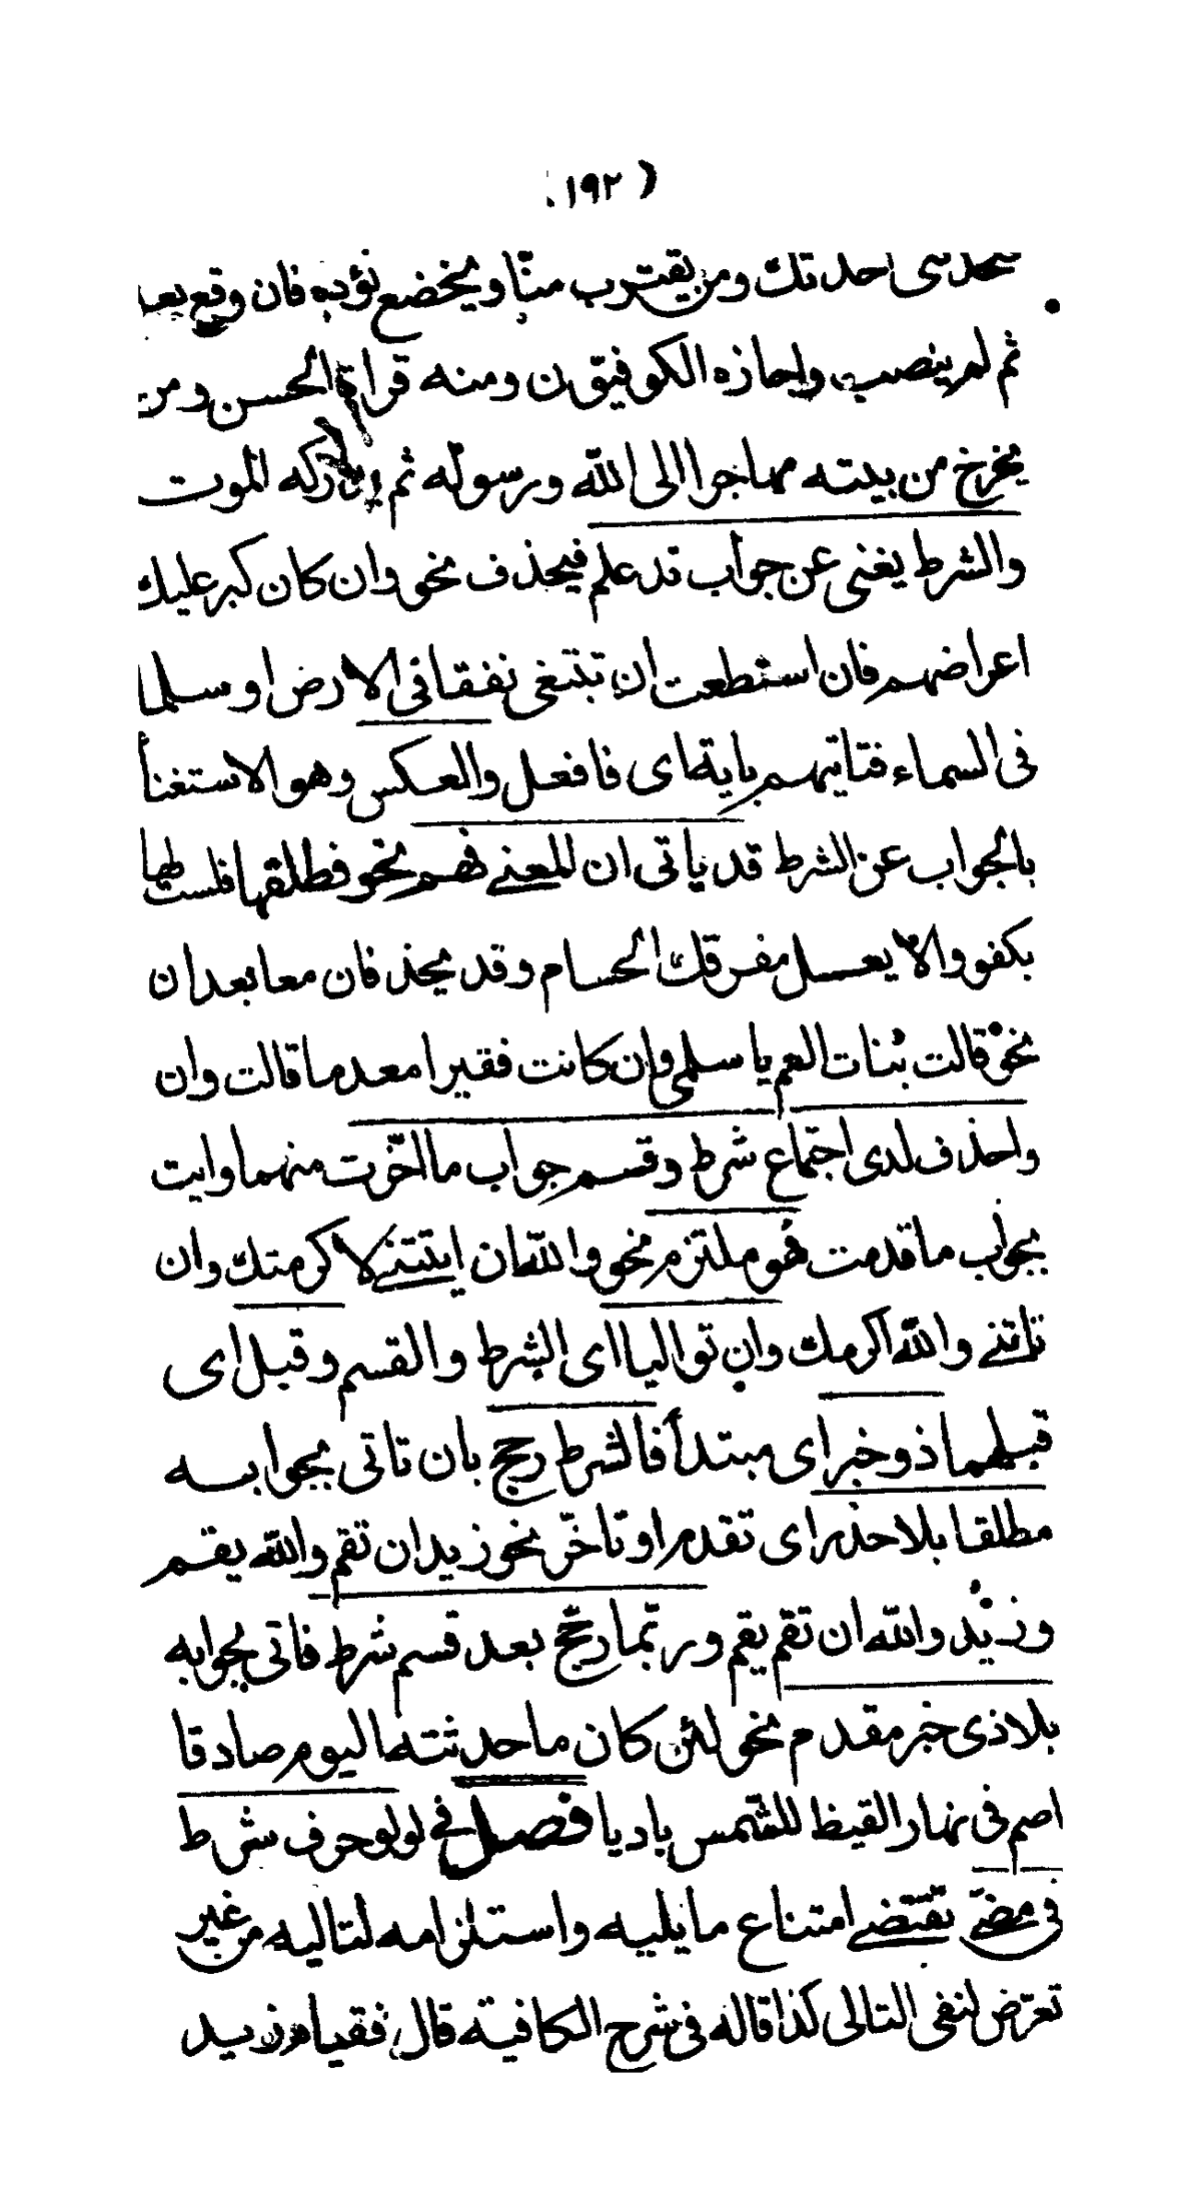 (١٩٢)
تحدثنى احدثك ومن يقترب منّا ويخضع نؤده فان وقع بعد
ثم لم ينصب واجازه الكوفيّون ومنه قراءة الحسن ومن
يخرج من بيته مهاجرا الى الله ورسوله ثم يدركه الموت
والشرط يغنى عن جواب قد علم فيحذف نحو وان كان كبر عليك
اعراضهم فان استطعت ان تبتغى نفقا فى الارض او سلما
فى السماء فتاتيهم باية اى فافعل والعكس وهو الاستغنأ
بالجواب عن الشرط قد ياتى ان المعنے فهم نحو فطلقها فلست لها
بكفو والا يعسل مفرقك الحسام وقد يحذفان معا بعد ان
نحو قالت بنات العم يا سلمى وان كانت فقيرا معدما قالت وان
واحذف لدى اجتماع شرط وقسم جواب ما اخّرت منهما وايت
بجواب ما قدمت فهو ملتزم نحو والله ان ايتتنے لاكرمتك وان
تاتنے والله اكرمك وان تواليا اى الشرط والقسم وقبل اى
قبلهما ذو خبر اى مبتدأ فالشرط رجح بان تاتى بجوابه
مطلقا بلا حذر اى تقدم او تاخّر نحو زيد ان تقم والله يقم
وزيد والله ان تقم يقم وربّما رجّح بعد قسم شرط فاتى بجوابه
بلا ذى خبر مقدم نحو لئن كان ما حدثته اليوم صادقا
اصم فى نهار القيظ للشمس باديا فصل فے لو لو حرف شرط
فى مضىّ تقتضے امتناع ما يليه واستلزامه لتاليه من غير
تعرّض لنفى التالى كذا قاله فى شرح الكافية قال فقيام زيد